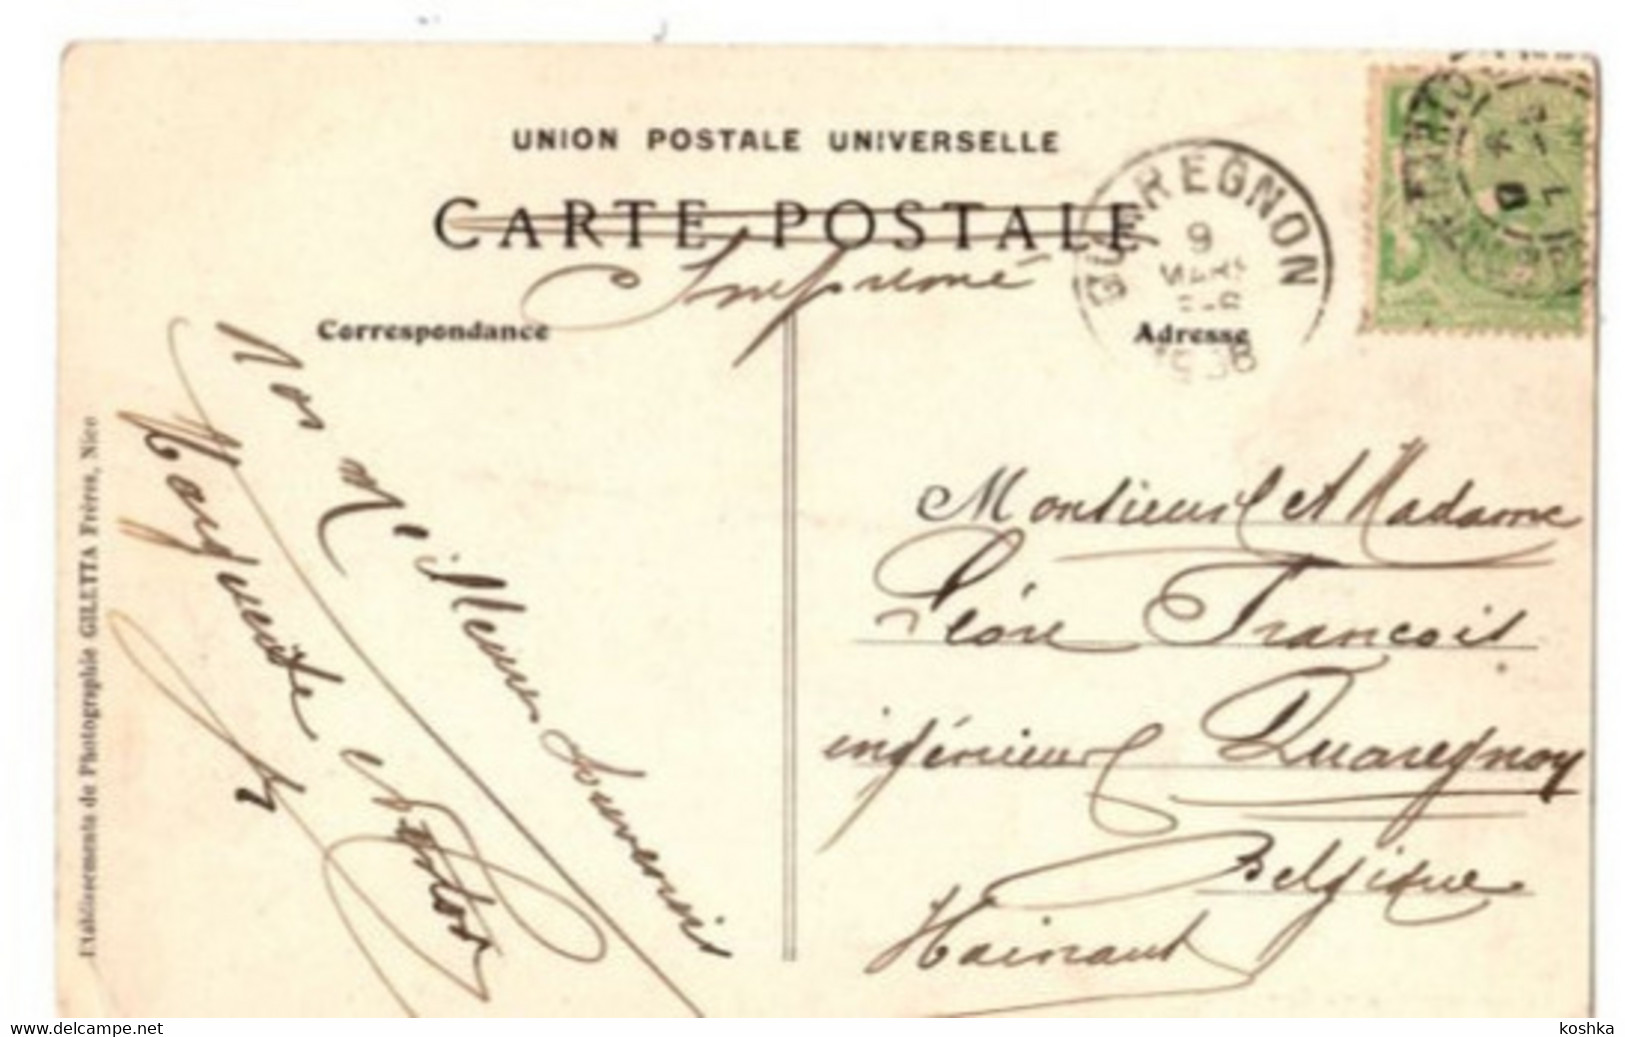 UNION POSTALE UNIVERSELLE
CARTE POSTALE
Imprimé
QUAREGNON
9
MARS
Correspondance
Adresse
Nos Meilleurs Souvenirs
Marguerite
Monsieur et Madame
Léon François
ingénieur Quaregnon
Belgique
Hainaut
Etablissements de Photographie GILETTA Frères, Nice
www.delcampe.net
koshka